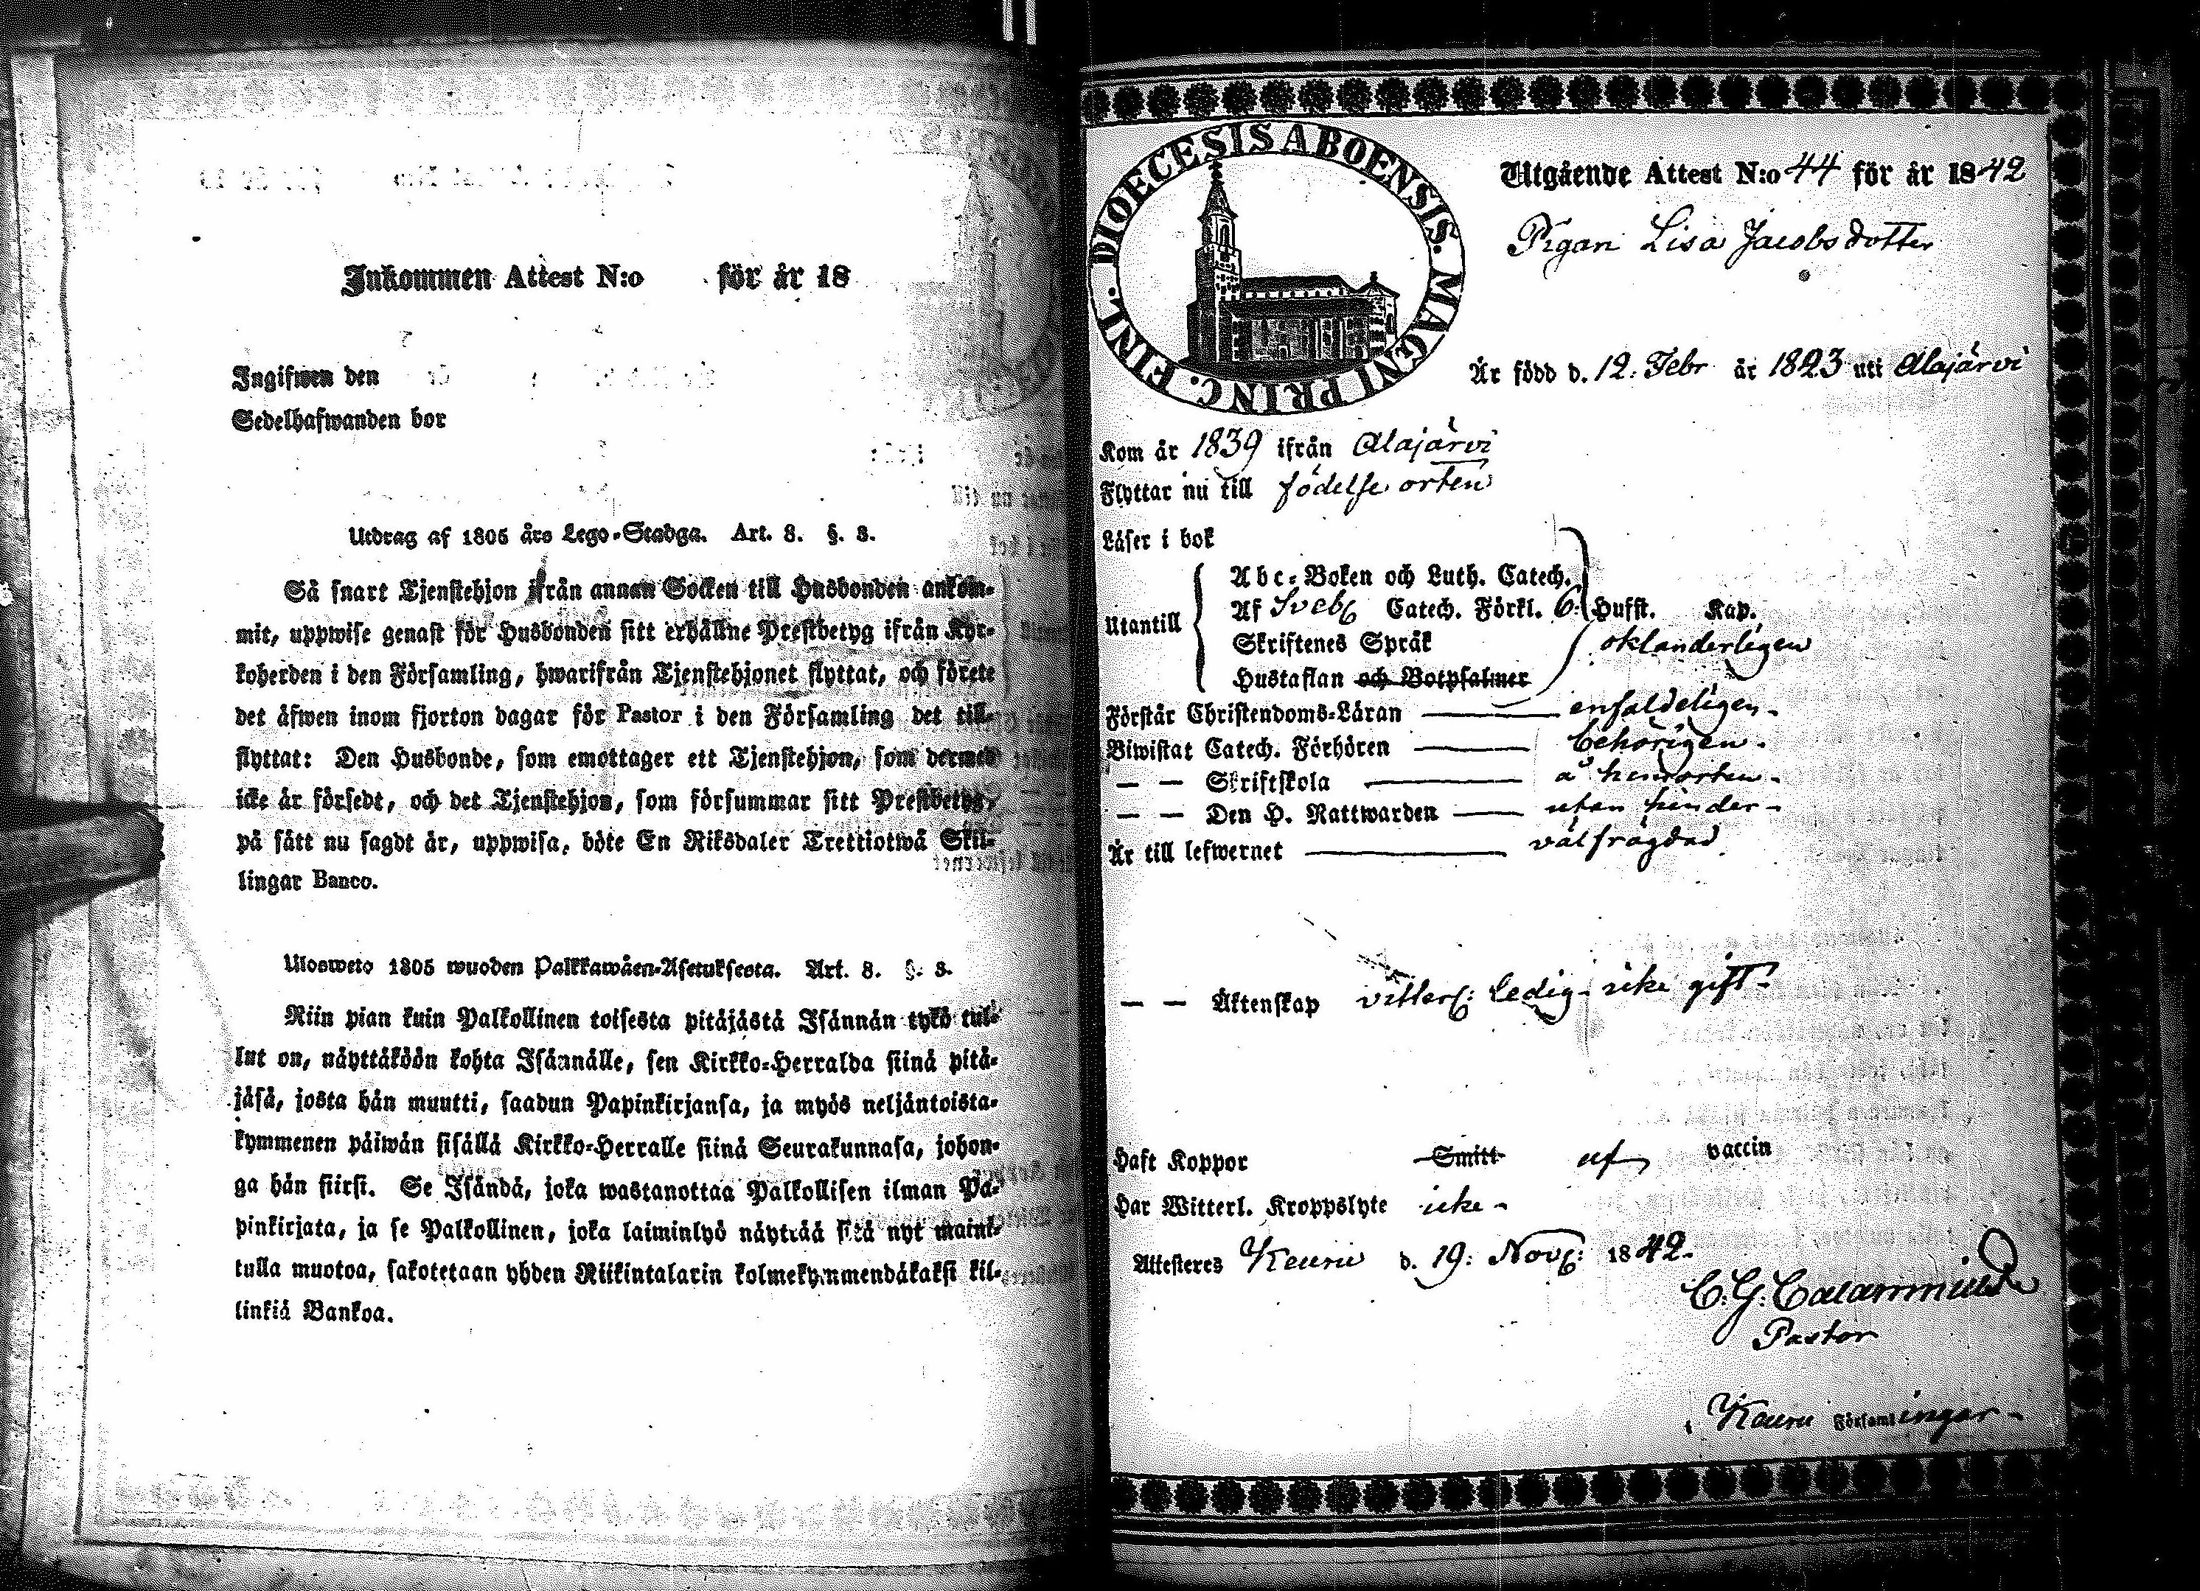 Inkommen Attest N:o för år 18
Ingifwen den
Sedelhafwanden bor
Utdrag af 1805 års Lego-Stadga. Art. 8. §. 8.
Så snart Tjenstehjon ifrån annan Socken till Husbonden ankom-
mit, uppwise genast för Husbonden sitt erhållne Prestbetyg ifrån Kyr-
koherden i den Församling, hwarifrån Tjenstehjonet flyttat, och förete
det äfwen inom fjorton dagar för Pastor i den Församling det till-
flyttat: Den Husbonde, som emottager ett Tjenstehjon, som dermed
icke är försedt, och det Tjenstehjon, som försummar sitt Prestbetyg,
på sätt nu sagdt är, uppwisa, böte En Riksdaler Trettiotwå Skil-
lingar Banco.
Ulosweto 1805 wuoden Palkkawäen-Asetuksesta. Art. 8. §. 8.
Niin pian kuin Palkollinen toisesta pitäjästä Isännän tykö tul-
lut on, näyttäköön kohta Isännälle, sen Kirkko-Herralda siinä pitä-
jäsä, josta hän muutti, saadun Papinkirjansa, ja myös neljäntoista-
kymmenen päiwän sisällä Kirkko-Herralle siinä Seurakunnasa, johon-
ga hän siirsi. Se Isändä, joka wastanottaa Palkollisen ilman Pa-
pinkirjata, ja se Palkollinen, joka laiminlyö näyttää sitä nyt maini-
tulla muotoa, sakotetaan yhden Riikintalarin kolmekymmendäkaksi kil-
linkiä Bankoa.
DIOECESIS ABOENSIS. MAGNI PRINC. FINL.
Utgående Attest N:o 44 för år 1842
Pigan Lisa Jacobsdotter
Är född d. 12. Febr år 1823 uti Alajärvi
Kom år 1839 ifrån Alajärvi
Flyttar nu till födelse orten
Läser i bok
Abc-Boken och Luth. Catech.
Utantill Af Sveb: Catech. Förkl. 6: Hufst. Kap.
Skriftenes Språk oklanderligen
Hustaflan och Botpsalmer
Förstår Christendoms-Läran enfaldeligen -
Biwistat Catech. Förhören behörigen -
— — Skriftskola å hemorten -
— — Den H. Nattwarden utan hinder -
Är till lefwernet välfrägdad
— — Äktenskap vitterl: ledig - icke gift -
Haft Koppor Smitt af vaccin
Har Witterl. Kroppslyte icke -
Attesteres Keuru d. 19: Nov: 1842.
C. G. Calamnius
Pastor
Keuru Församlingar -